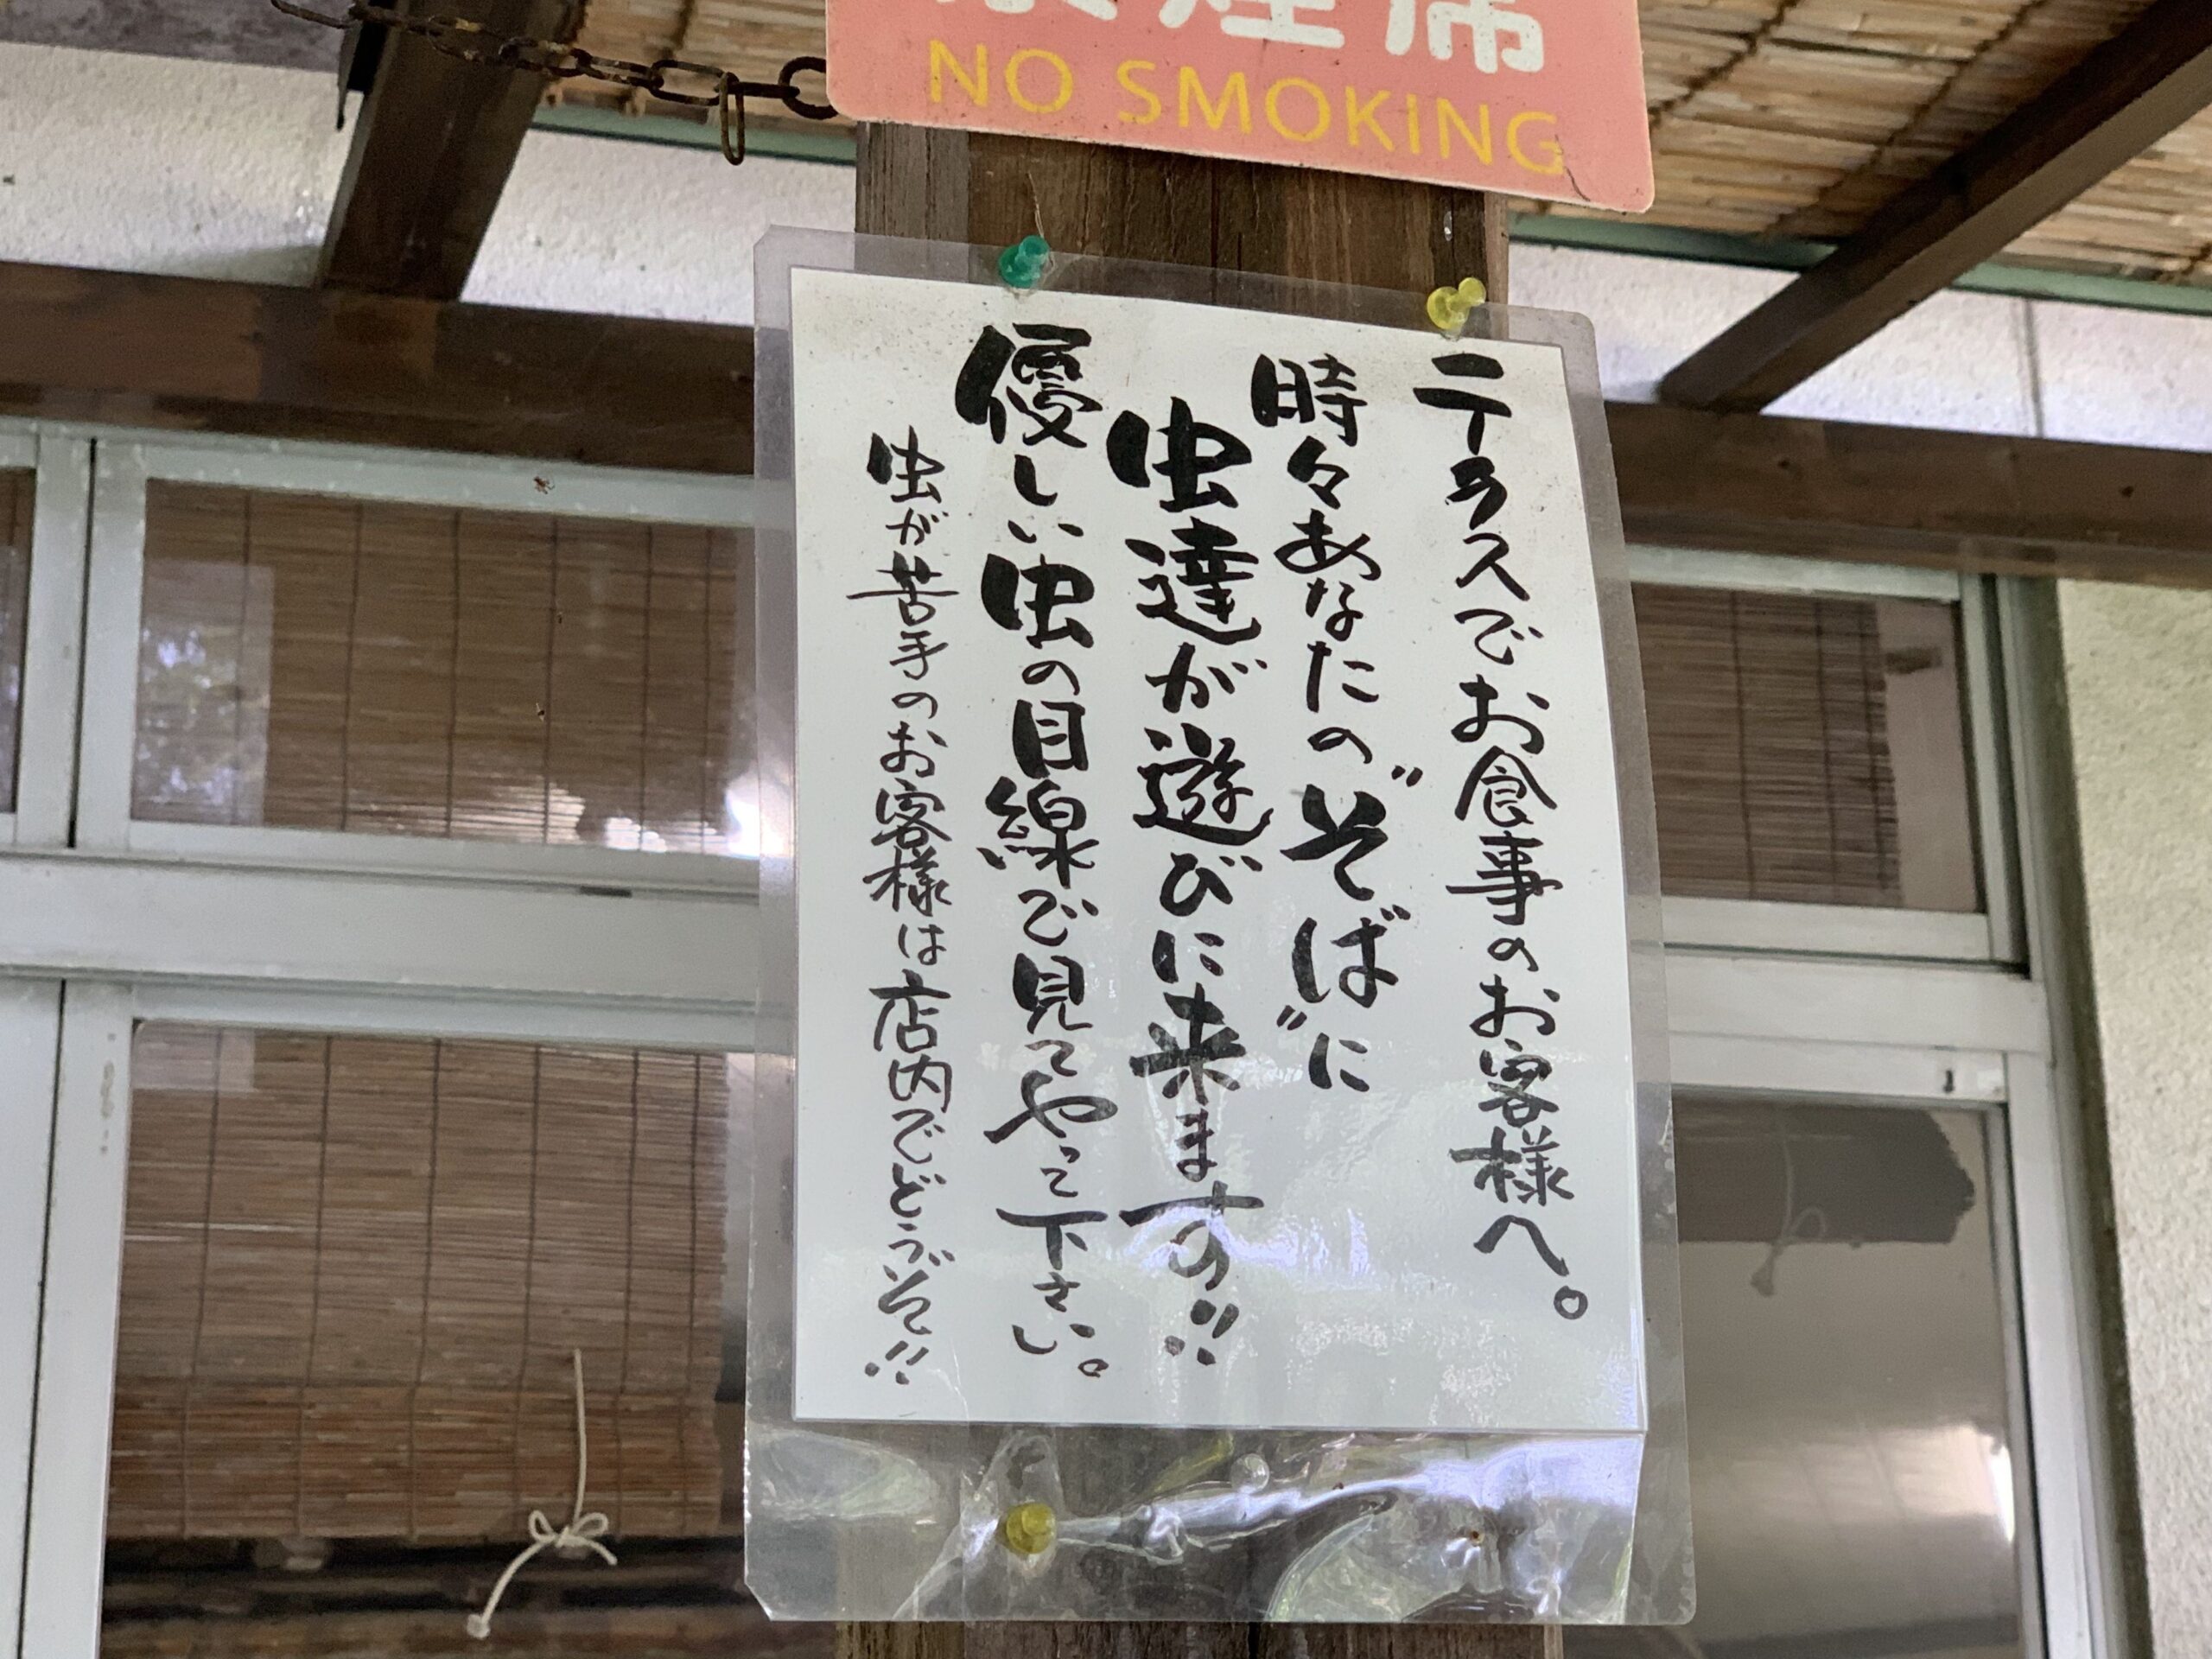 禁煙席
NO SMOKING
テラスでお食事のお客様へ。
時々あなたの〝そば〟に
虫達が遊びに来ます!!
優しい虫の目線で見てやって下さい。
虫が苦手のお客様は店内でどうぞ!!